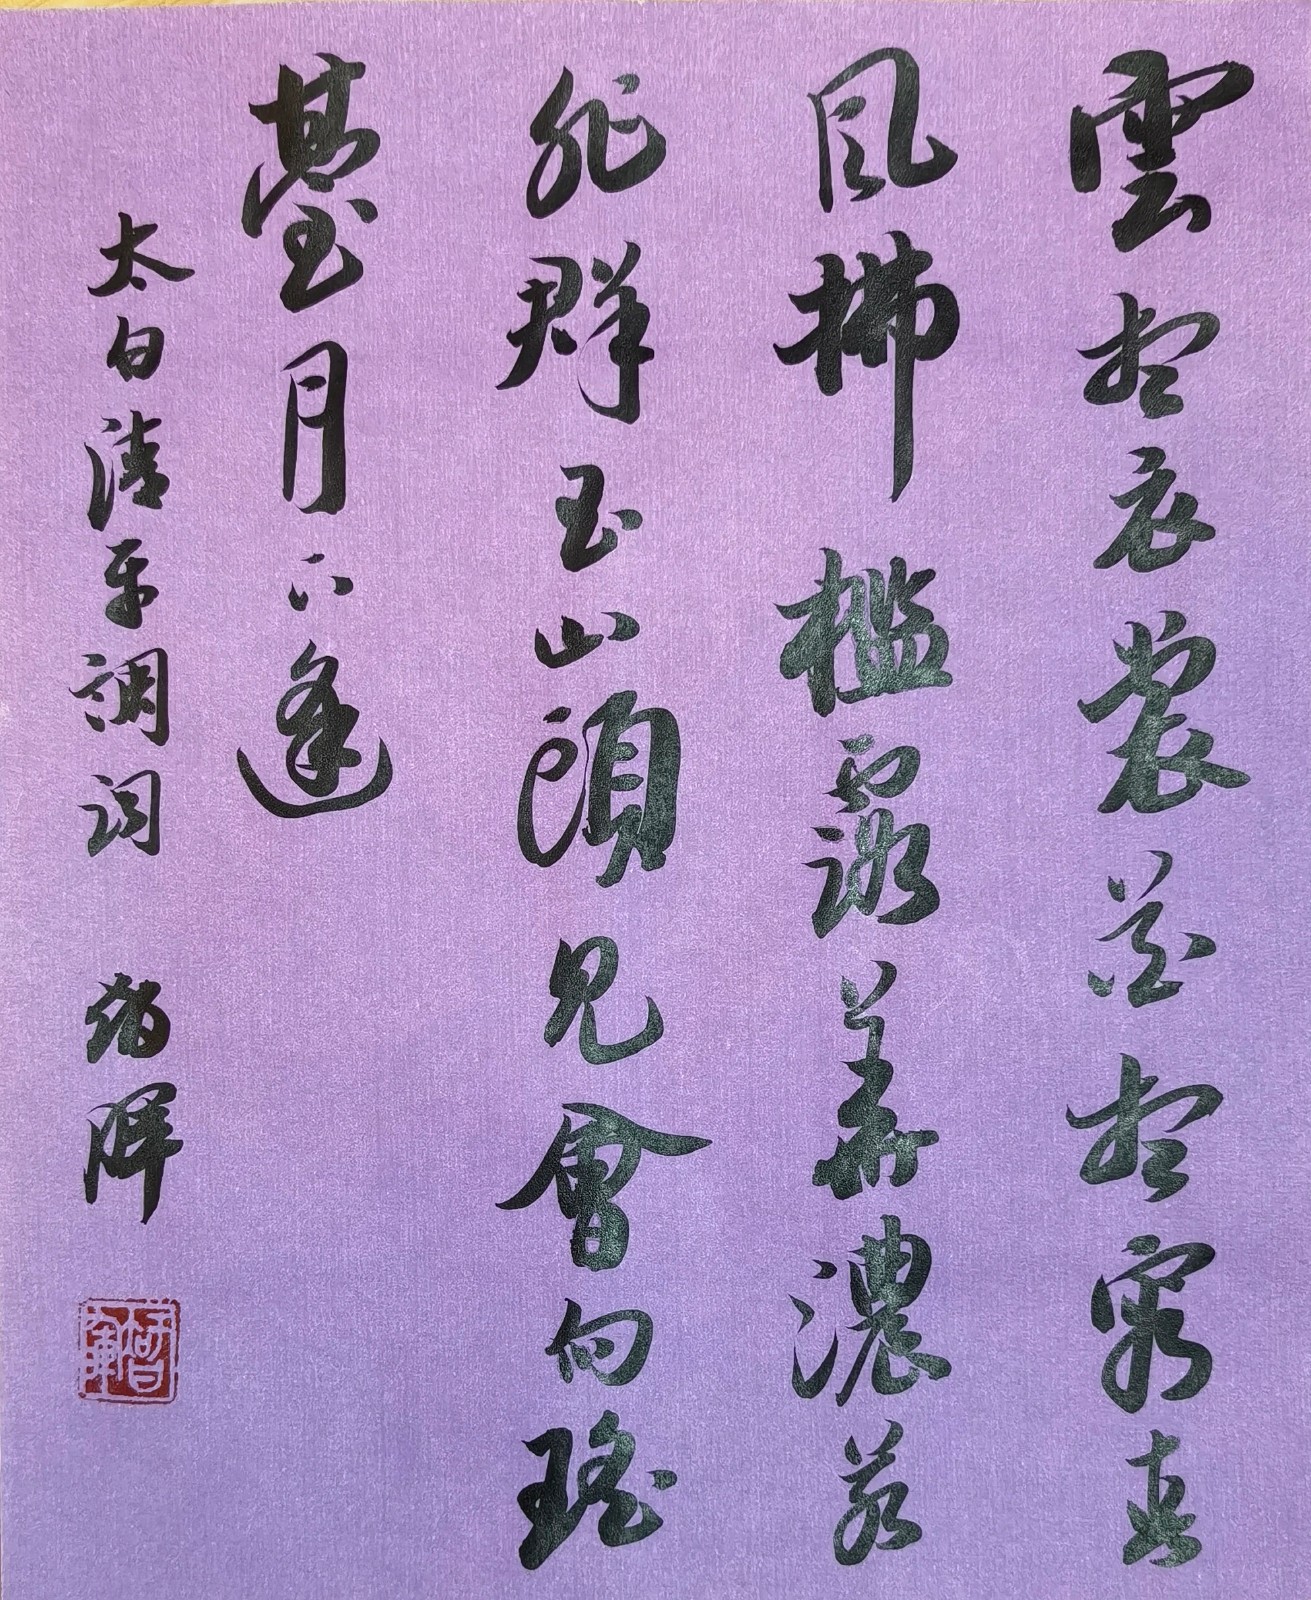 雲想衣裳花想容春
風拂檻露華濃若
非群玉山頭見會向瑤
臺月下逢
太白清平調詞